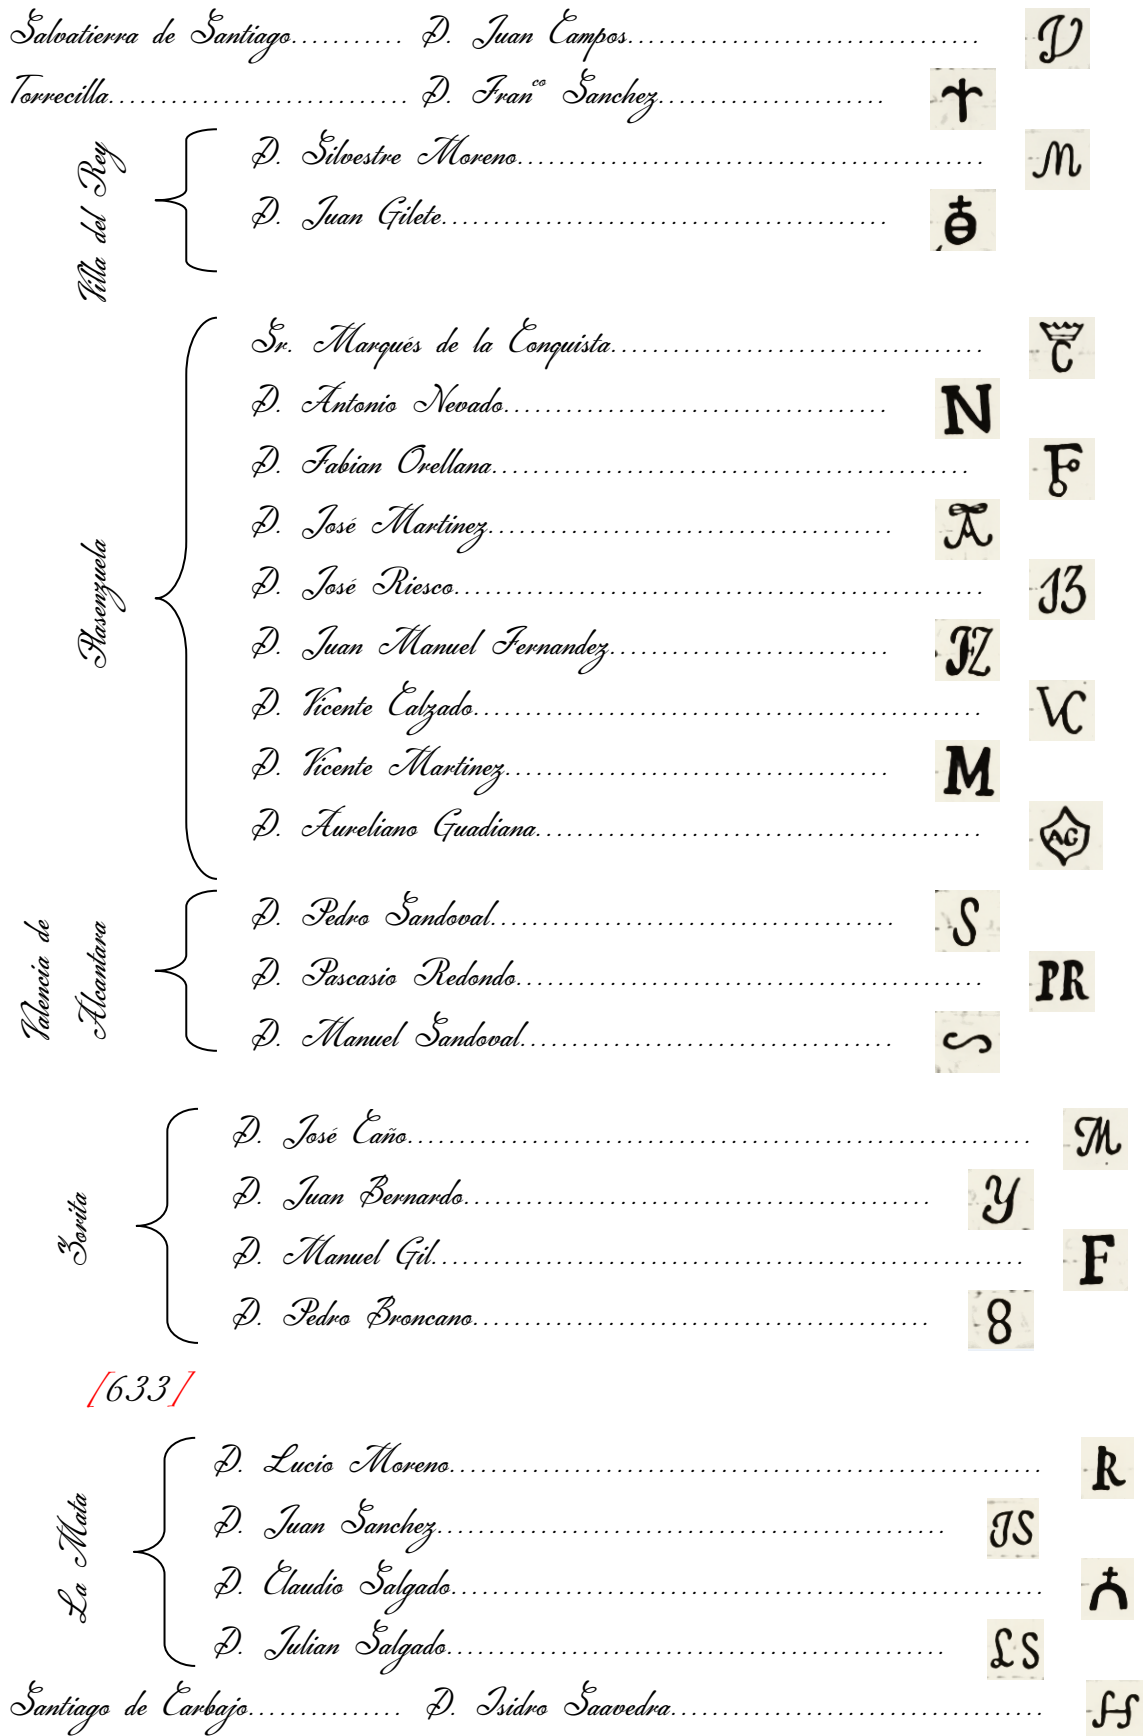 Salvatierra de Santiago........... D. Juan Campos................................... D
Torrecilla.............................. D. Fran^co Sanchez.......................
Villa del Rey
D. Silvestre Moreno............................................... M
D. Juan Gilete.............................................
Plasenzuela
Sr. Marqués de la Conquista..................................... C
D. Antonio Nevado...................................... N
D. Fabian Orellana................................................ F
D. José Martinez........................................ A
D. José Riesco..................................................... 13
D. Juan Manuel Fernandez............................ FZ
D. Vicente Calzado................................................... VC
D. Vicente Martinez...................................... M
D. Aureliano Guadiana............................................ AG
Valencia de
Álcantara
D. Pedro Sandoval........................................ S
D. Pascasio Redondo............................................... PR
D. Manuel Sandoval..................................... S
Zorita
D. José Caño.............................................................. M
D. Juan Bernardo............................................... Y
D. Manuel Gil........................................................... F
D. Pedro Broncano.............................................. 8
[633]
La Mata
D. Lucio Moreno........................................................... R
D. Juan Sanchez................................................... JS
D. Claudio Salgado...........................................................
D. Julian Salgado.................................................. LS
Santiago de Carbajo............... D. Isidro Saavedra.....................................